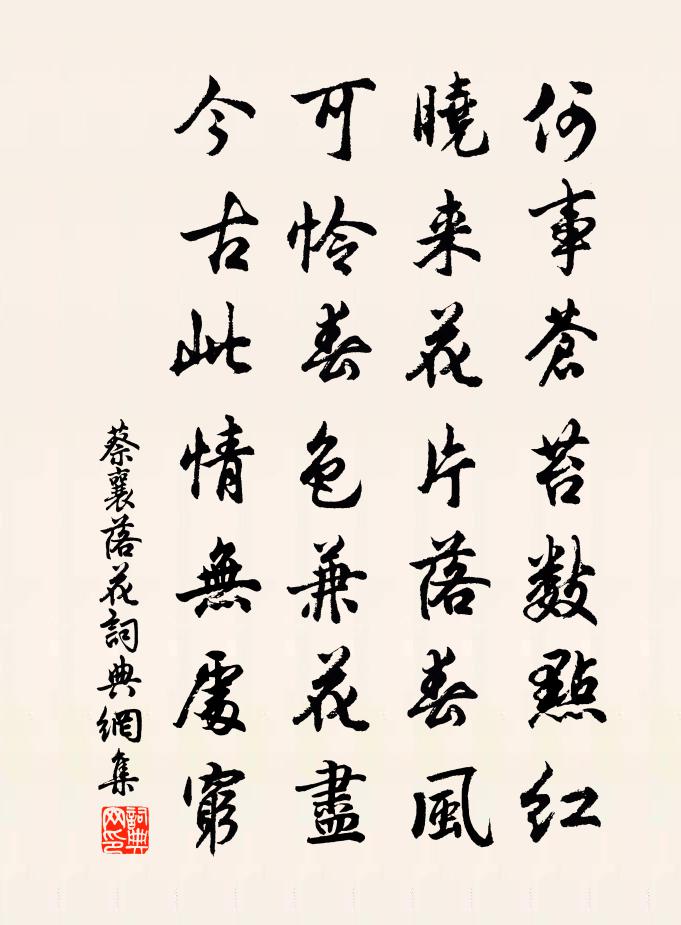 何事蒼苔數點紅
曉来花片落春風
可怜春色兼花盡
今古此情無處窮
蔡襄落花詞典網集
詞典網印